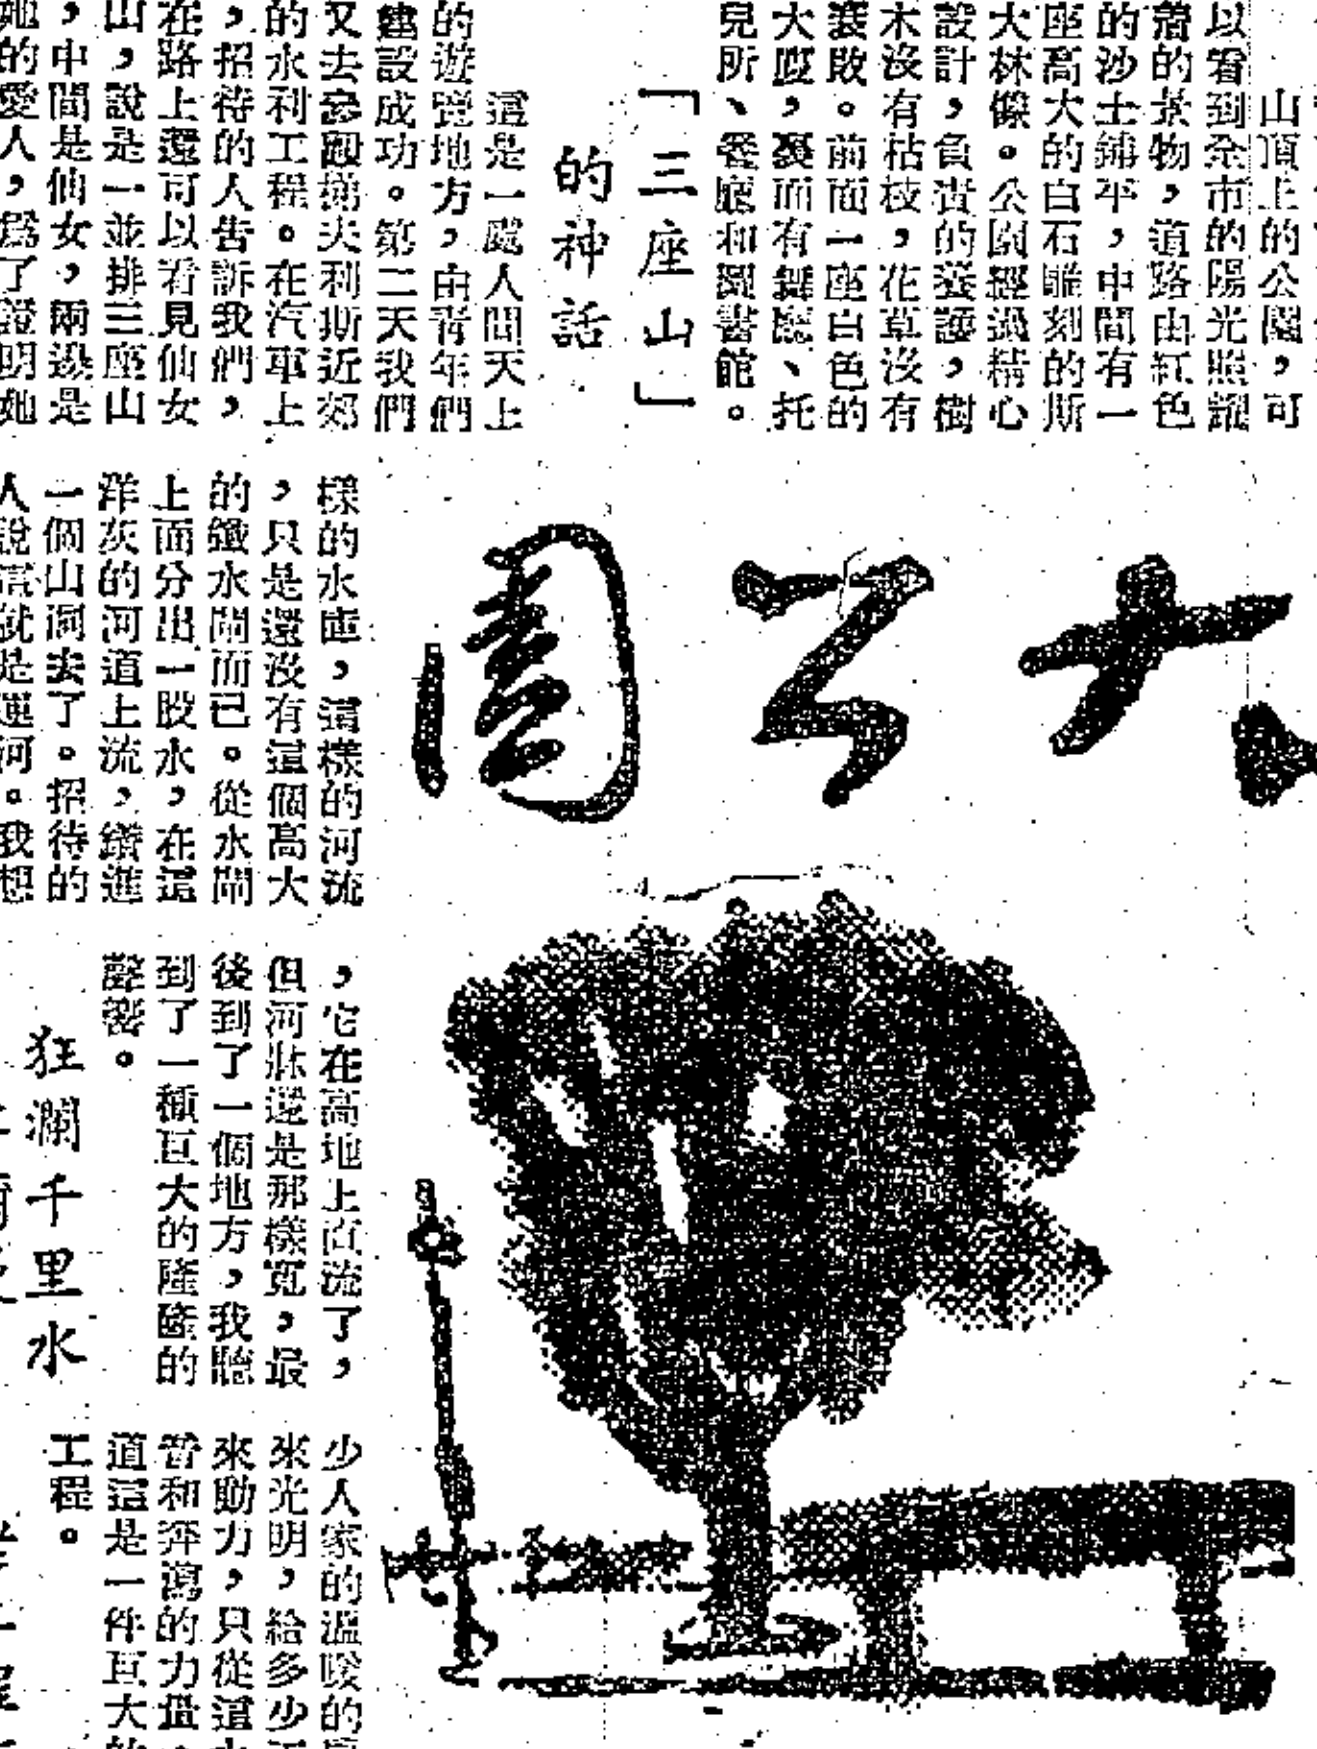 山頂上的公園，可
以看到全市的陽光照耀
的景物，道路由紅色
的沙土鋪平，中間有一
座高大的白石雕刻的斯
大林像。公園經過精心
設計，負責的養護，樹
木沒有枯枝，花草沒有
衰敗。前面一座白色的
大廈，裏面有舞廳、托
兒所、餐廳和圖書館。
「三座山」
的神話
這是一處人間天上
的遊覽地方，由青年們
建設成功。第二天我們
又去參觀梯夫利斯近郊
的水利工程。在汽車上
，招待的人告訴我們，
在路上還可以看見仙女
山，說是一並排三座山
，中間是仙女，兩邊是
她的愛人，爲了證明她
大公園
樣的水庫，這樣的河流
，只是還沒有這個高大
的鐵水閘而已。從水閘
上面分出一股水，在這
洋灰的河道上流，鑽進
一個山洞去了。招待的
人說這就是運河。我想
，它在高地上直流了，
但河牀還是那樣寬，最
後到了一個地方，我聽
到了一種巨大的隆隆的
聲響。
狂瀾千里水
少人家的溫暖的
來光明，給多少
來動力，只從這
管和奔瀉的力量
道這是一件巨大的
工程。